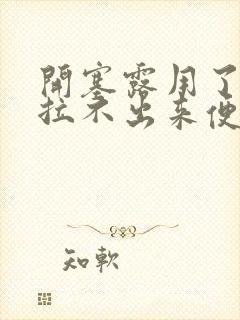 開塞露用了
拉不出来便
知軟